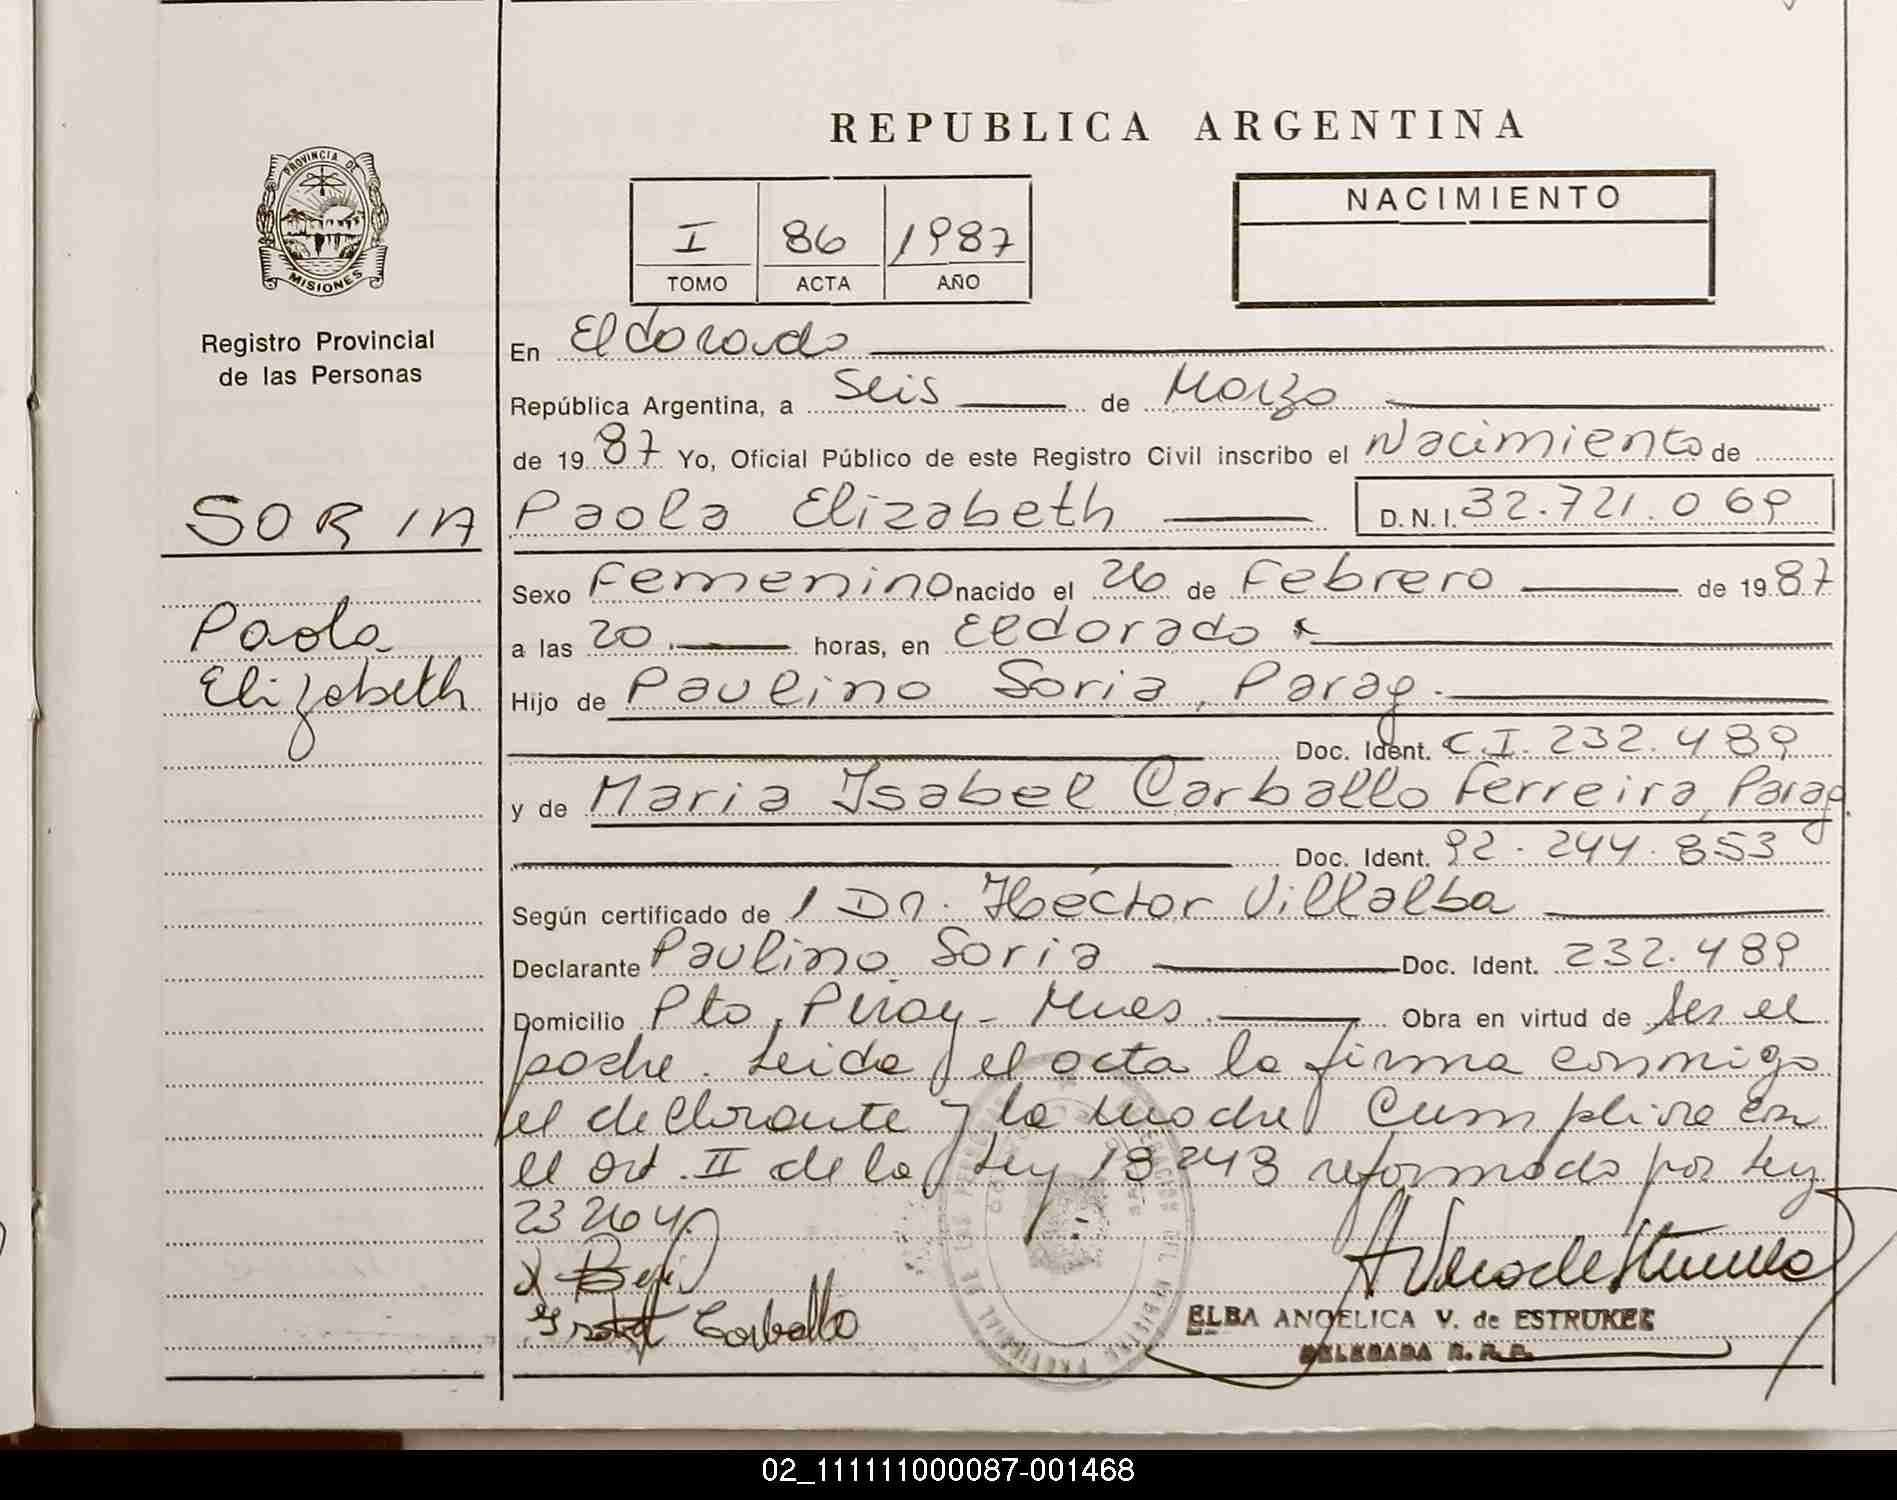 REPUBLICA ARGENTINA
PROVINCIA DE
MISIONES
Registro Provincial
de las Personas
I 86 1987
TOMO ACTA AÑO
NACIMIENTO
SORIA
Paola
Elizabeth
En Eldorado
República Argentina, a Seis de Marzo
de 1987 Yo, Oficial Público de este Registro Civil inscribo el Nacimiento de
Paola Elizabeth D.N.I. 32.721.069
Sexo Femenino nacido el 26 de Febrero de 1987
a las 20 horas, en Eldorado
Hijo de Paulino Soria, Parag.
Doc. Ident. C.I. 232.489
y de Maria Isabel Carballo Ferreira, Parag.
Doc. Ident. 92.244.853
Según certificado de 1 Dr. Héctor Villalba
Declarante Paulino Soria Doc. Ident. 232.489
Domicilio Pto. Piray - Mnes Obra en virtud de ser el
padre. Leida el acta la firma conmigo
el declarante y la madre Cumplire con
el art. II de la Ley 18248 reformado por Ley
23264.
Carballo
ELBA ANGELICA V. de ESTRUKEL
DELEGADA R. P. P.
02_111111000087-001468